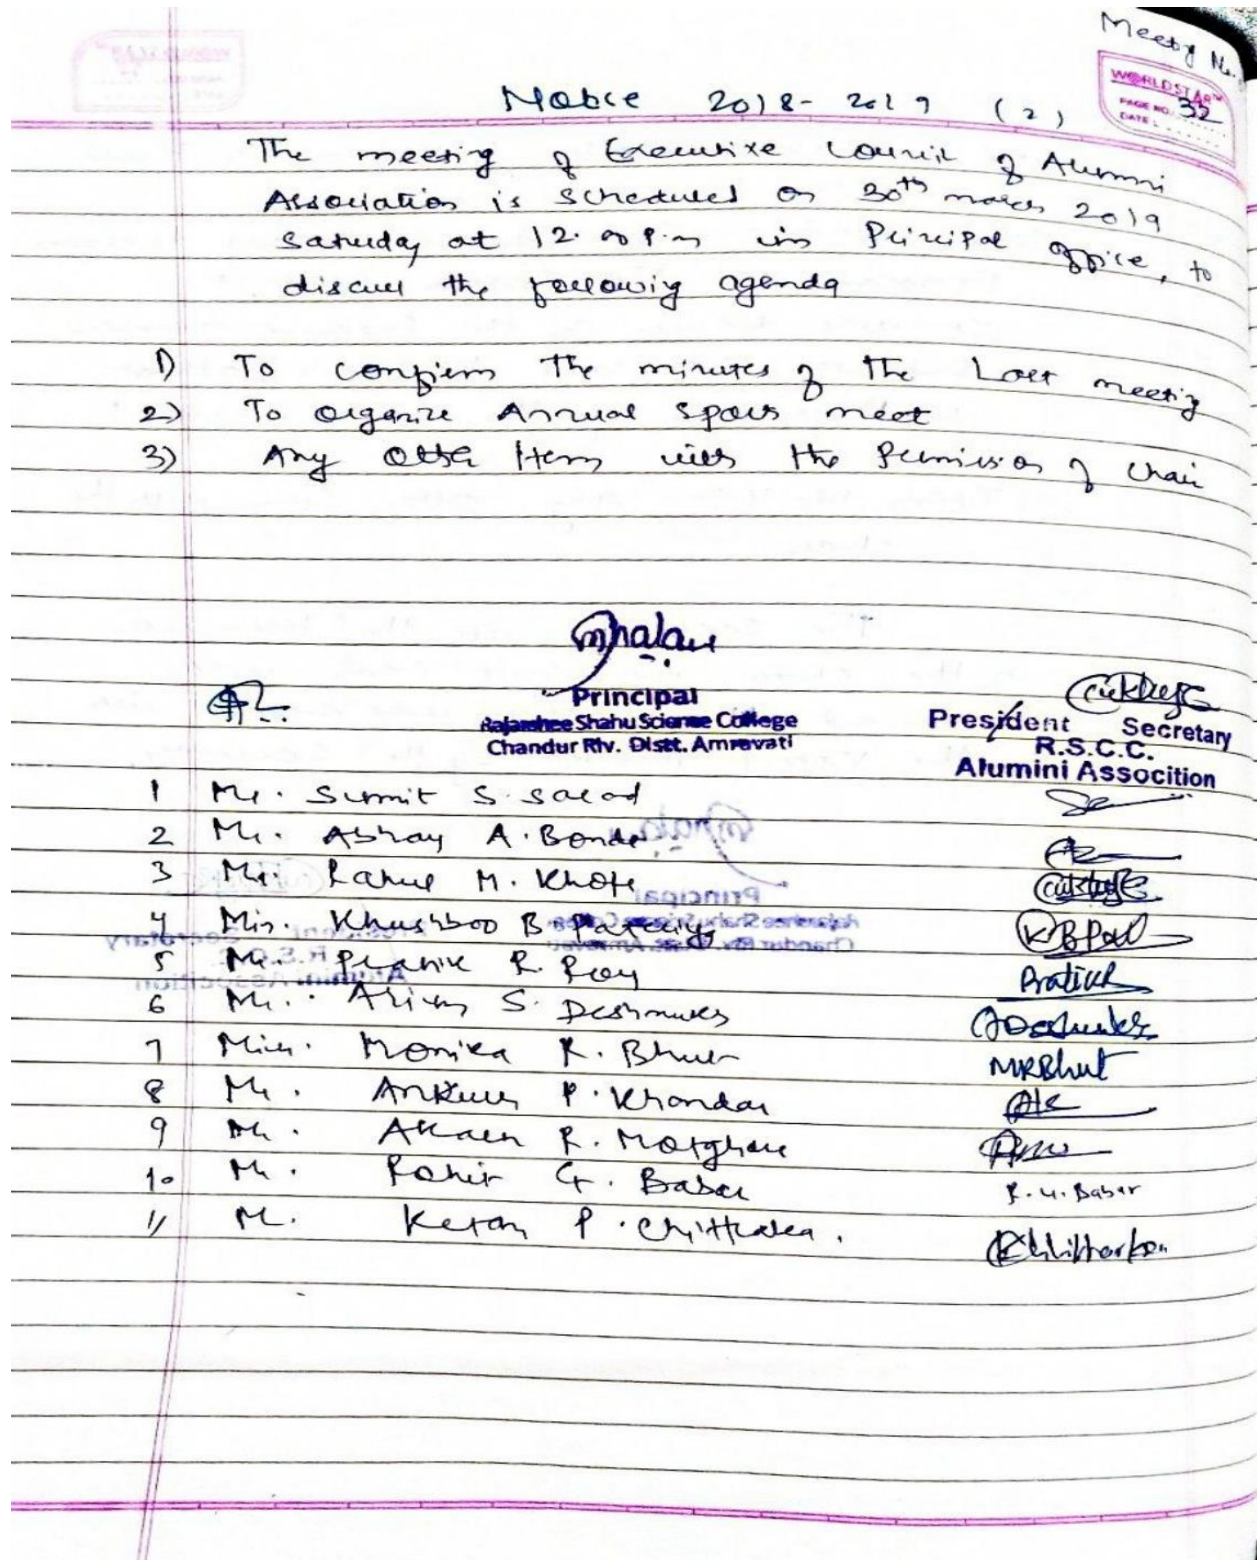 Meeting No.
WORLDSTAR
PAGE NO. 32
DATE :
Notice 2018-2019 (2)
The meeting of Executive Council of Alumni
Association is scheduled on 30th march 2019
Saturday at 12.00 p.m in Principal office, to
discuss the following agenda
1) To confirm the minutes of the Last meeting
2) To organize Annual sports meet
3) Any other Item with the permission of chair
Principal
Rajarshee Shahu Science College
Chandur Rly. Distt. Amravati
President Secretary
R.S.C.C.
Alumini Assocition
1 Mr. Sumit S. Sarad
2 Mr. Abhay A. Bonde
3 Mr. Rahul M. Khote
4 Mis. Khushboo B.
5 Mr. R. Roy Pratik
6 Mr. S. Deshmukh
7 Miss. Monika R. Bhut MRBhut
8 Mr. Ankush P. Khandar
9 Mr. Akash R. Morghare
10 Mr. Rohit G. Babar R. G. Babar
11 Mr. Ketan P. Chitharkar.